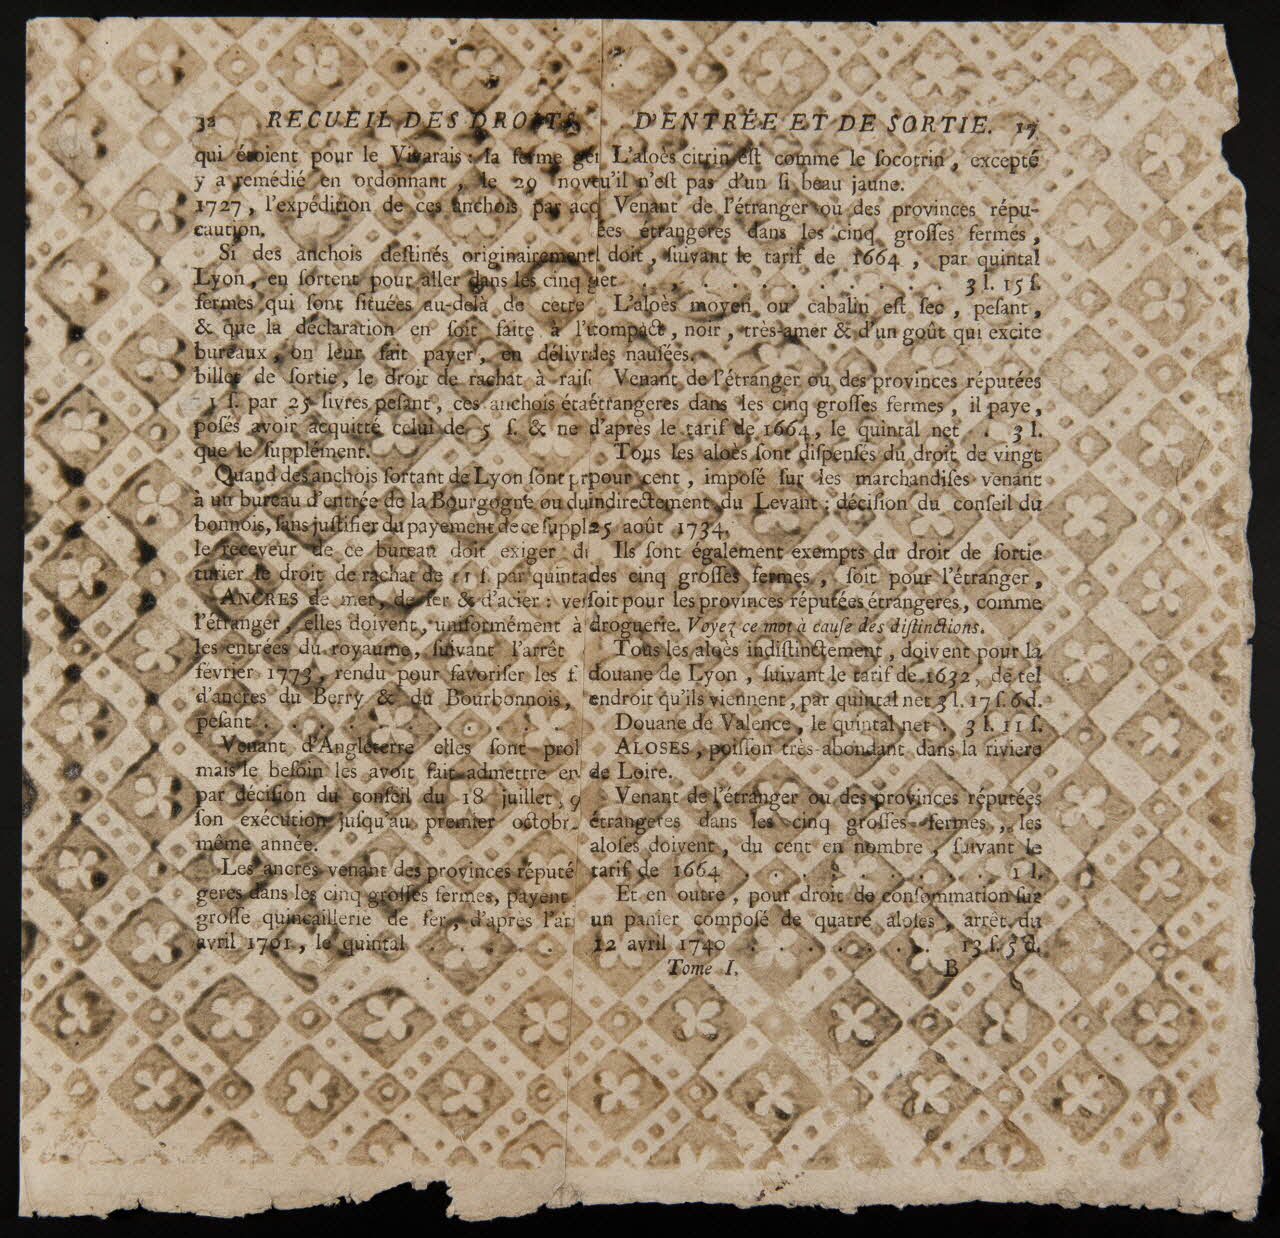 32 RECUEIL DES DROITS
qui étoient pour le Vivarais : la ferme gé
y a remédié en ordonnant, le 29 nov
1727, l'expédition de ces anchois par acq
caution.
Si des anchois destinés originairement
Lyon, en sortent pour aller dans les cinq
fermes qui sont situées au-delà de cette
& que la déclaration en soit faite à l'
bureaux, on leur fait payer, en délivr
billet de sortie, le droit de rachat à rais
1 s. par 25 livres pesant, ces anchois éta
posés avoir acquitté celui de 5 s. & ne
que le supplément.
Quand des anchois sortant de Lyon sont pr
à un bureau d'entrée de la Bourgogne ou du
bonnois, sans justifier du payement de ce suppl
le receveur de ce bureau doit exiger d
turier le droit de rachat de 11 s. par quinta
ANCRES de mer, de fer & d'acier : ve
l'étranger, elles doivent, uniformément à
les entrées du royaume, suivant l'arrêt
février 1773, rendu pour favoriser les f
d'ancres du Berry & du Bourbonnois,
pesant . . . . . . .
Venant d'Angleterre elles sont pro
mais le besoin les avoit fait admettre en
par décision du conseil du 18 juillet, q
son exécution jusqu'au premier octobr
même année.
Les ancres venant des provinces réputé
geres dans les cinq grosses fermes, payent
grosse quincaillerie de fer, d'après l'ar
avril 1701, le quintal . . . .
D'ENTRÉE ET DE SORTIE. 17
L'aloès citrin est comme le socotrin, excepté
u'il n'est pas d'un si beau jaune.
Venant de l'étranger ou des provinces répu-
ées étrangeres dans les cinq grosses fermes,
l doit, suivant le tarif de 1664, par quintal
net . . . . . . . . . . . 3 l. 15 s.
L'aloès moyen ou cabalin est sec, pesant,
compact, noir, très-amer & d'un goût qui excite
des nausées.
Venant de l'étranger ou des provinces réputées
étrangeres dans les cinq grosses fermes, il paye,
d'après le tarif de 1664, le quintal net . 3 l.
Tous les aloès sont dispensés du droit de vingt
pour cent, imposé sur les marchandises venant
indirectement du Levant : décision du conseil du
25 août 1734.
Ils sont également exempts du droit de sortie
des cinq grosses fermes, soit pour l'étranger,
soit pour les provinces réputées étrangeres, comme
droguerie. Voyez ce mot à cause des distinctions.
Tous les aloès indistinctement, doivent pour la
douane de Lyon, suivant le tarif de 1632, de tel
endroit qu'ils viennent, par quintal net 3 l. 17 s. 6 d.
Douane de Valence, le quintal net . 3 l. 11 s.
ALOSES, poisson très-abondant dans la riviere
de Loire.
Venant de l'étranger ou des provinces réputées
étrangeres dans les cinq grosses fermes, les
aloses doivent, du cent en nombre, suivant le
tarif de 1664 . . . . . . . 1 l.
Et en outre, pour droit de consommation sur
un panier composé de quatre aloses, arrêt du
12 avril 1740 . . . . . . . 13 s. 3 d.
Tome I. B